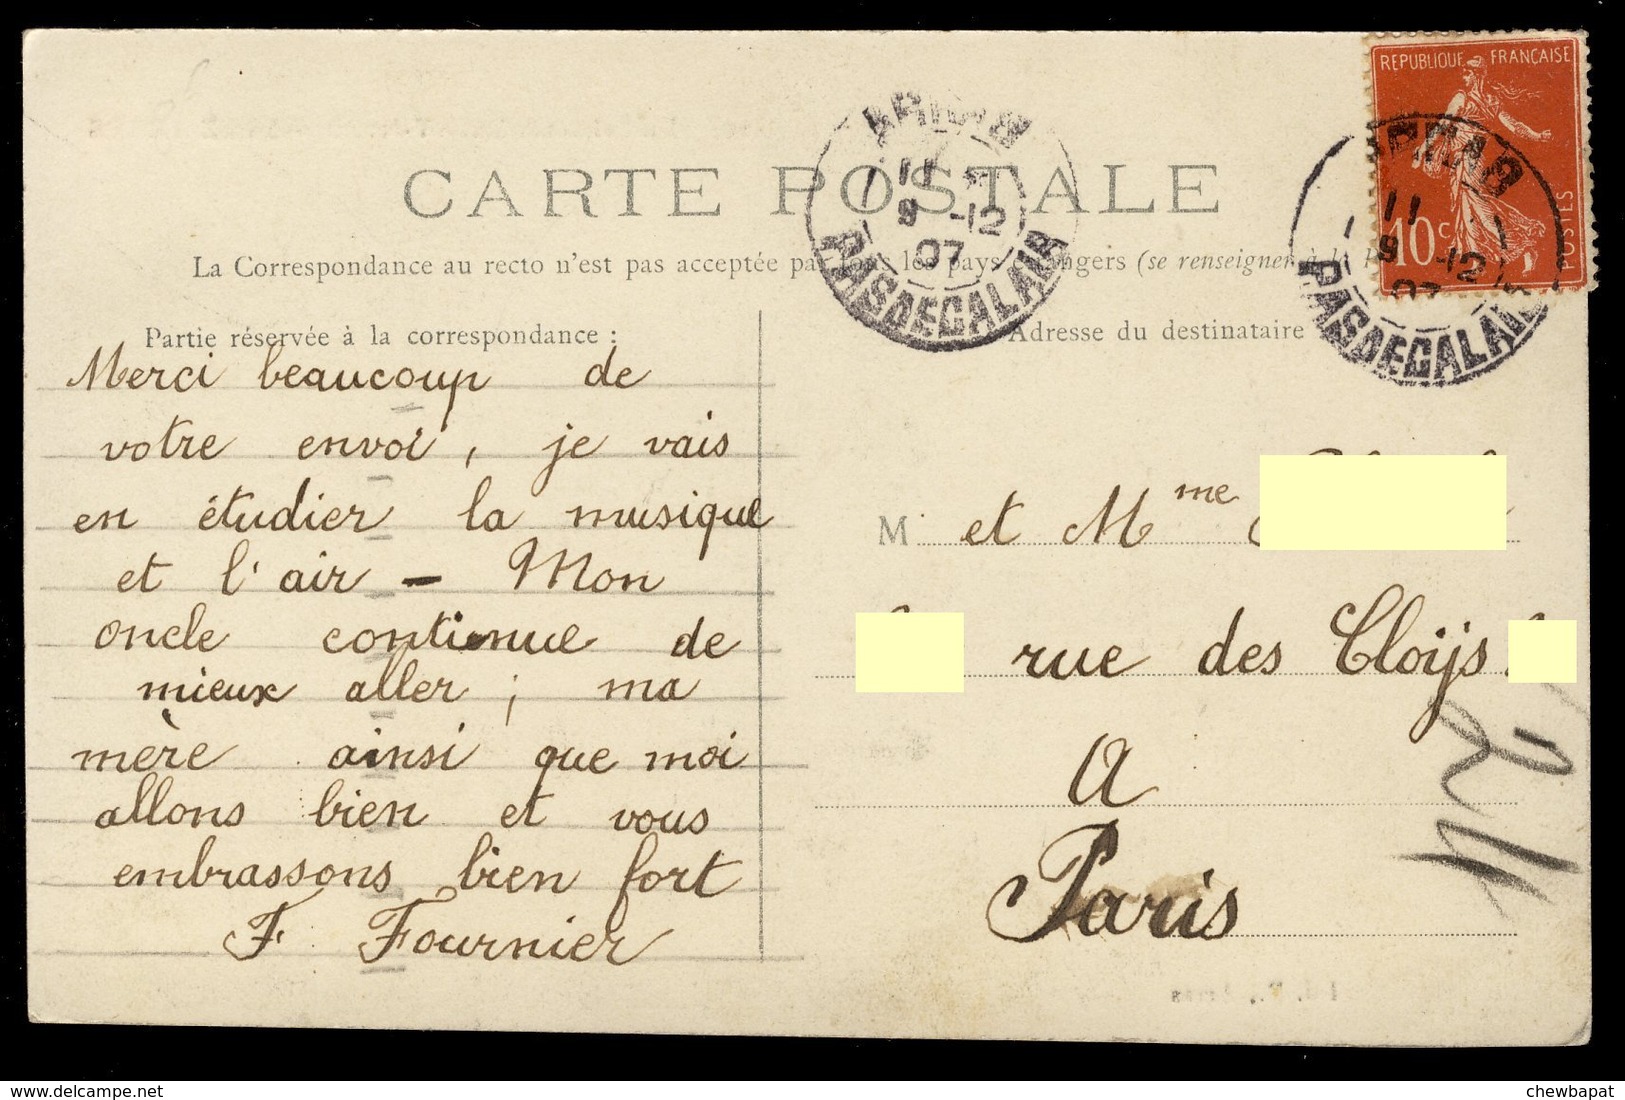 REPUBLIQUE FRANÇAISE
10 c
POSTES
CARTE POSTALE
11
9 -12
07
PAS DE CALAIS
11
9 -12
07
PAS DE CALAIS
La Correspondance au recto n'est pas acceptée par tous les pays (se renseigner à la
Partie réservée à la correspondance :
Adresse du destinataire
Merci beaucoup de
votre envoi, je vais
en étudier la musique
et l'air – Mon
oncle continue de
mieux aller ; ma
mère ainsi que moi
allons bien et vous
embrassons bien fort
F. Fournier
M et Mme
rue des Cloijs
A
Paris
24
delcampe.net
chewbapat